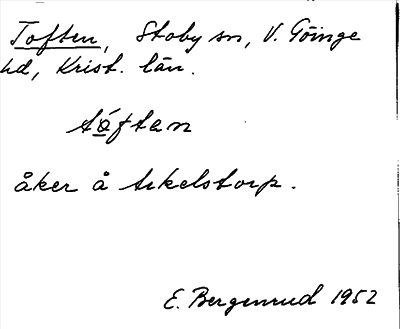 Toften, Stoby sn, V. Göinge
hd, Krist. län.
tóftan
åker å Askelstorp.
E. Bergenrud 1952